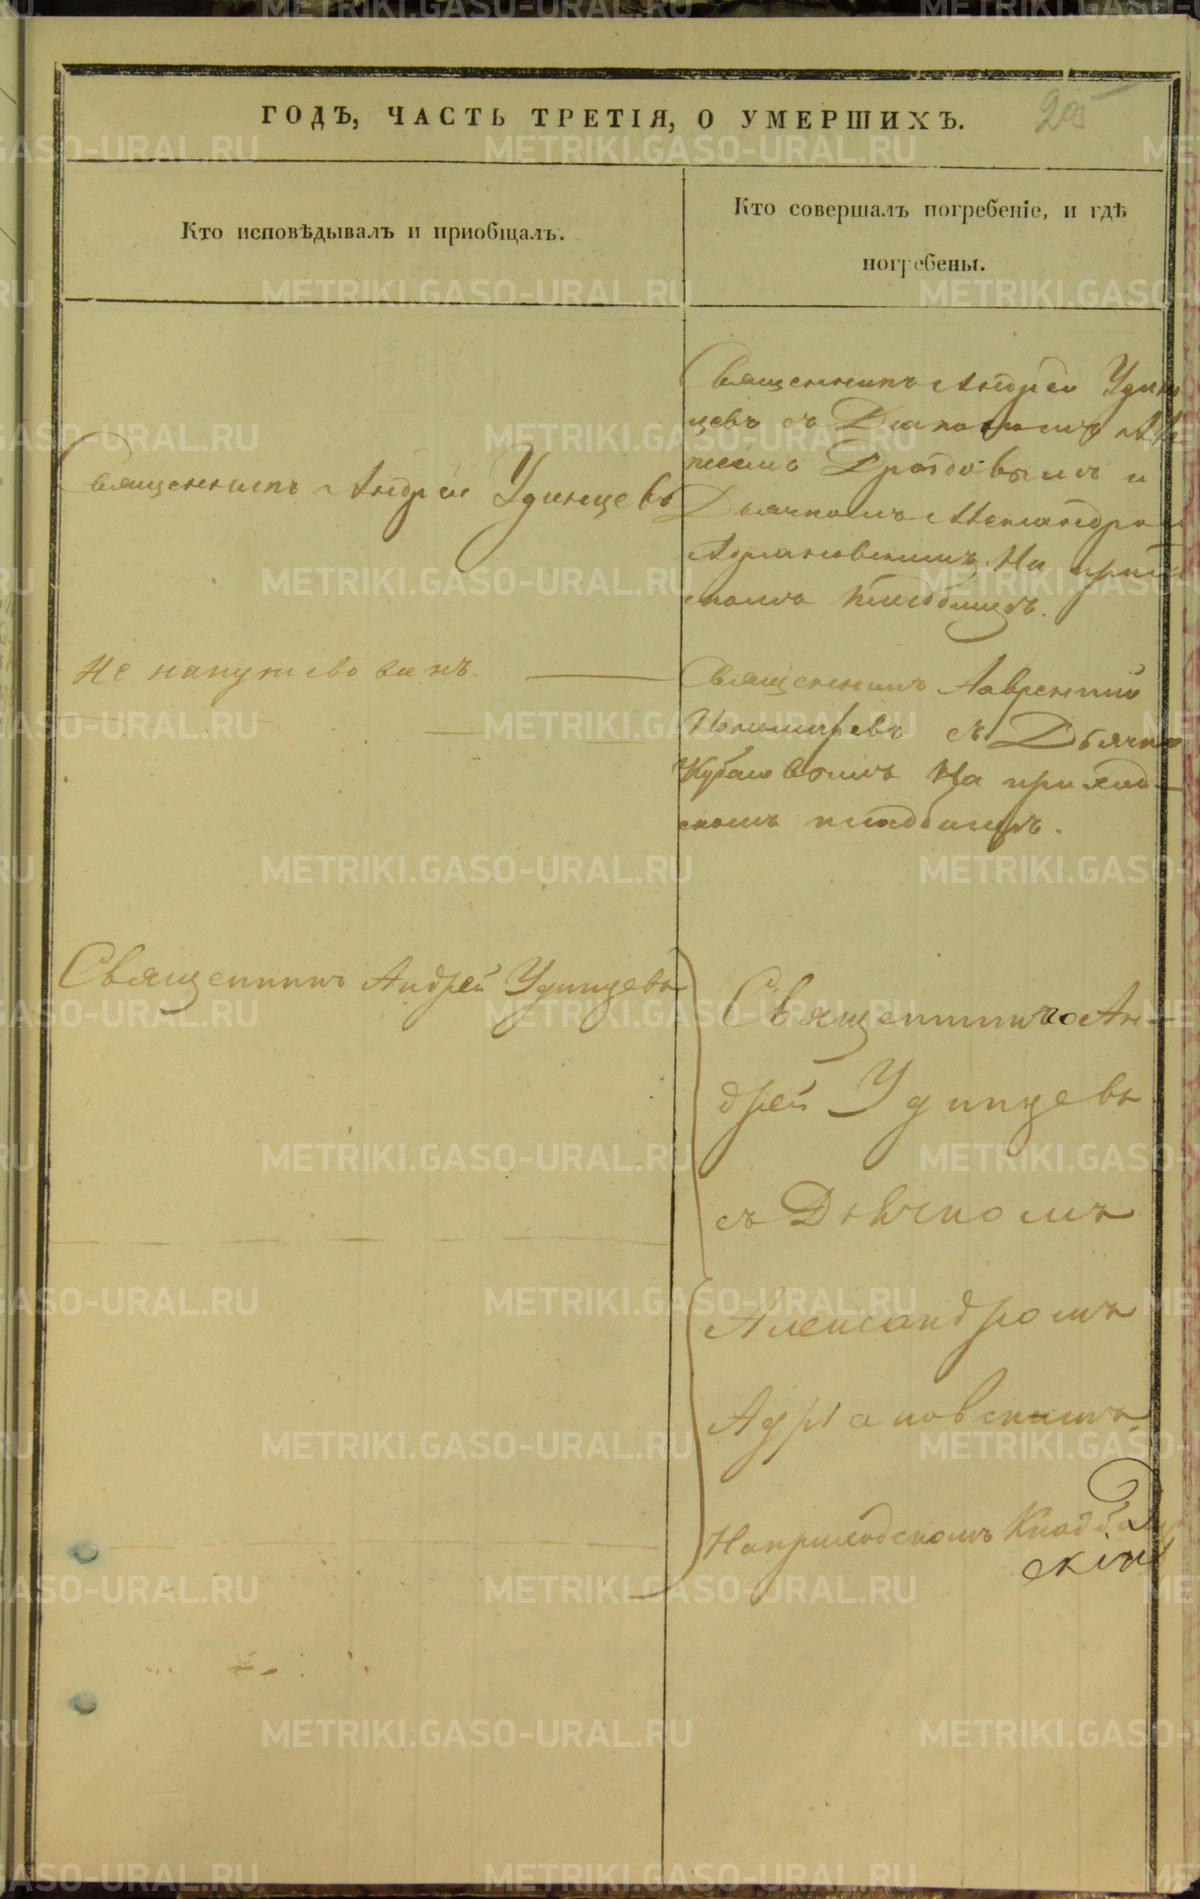 ГОДЪ, ЧАСТЬ ТРЕТІЯ, О УМЕРШИХЪ.
Кто исповѣдывалъ и пріобщалъ.
Кто совершалъ погребеніе, и гдѣ
погребены.
Священникъ Андрей Удинцевъ
Священникъ Андрей Удин
цевъ съ Діакономъ
Дроздовымъ и
Дьячкомъ Александромъ
Адріановскимъ. На приход
скомъ кладбищѣ.
Не напутствованъ.
Священникъ Лаврентій
съ Дьячко
На приход
скомъ кладбищѣ.
Священникъ Андрей Удинцевъ
Священникъ Ан
дрей Удинцевъ
съ Дьячкомъ
Александромъ
Адріановскимъ
На приходскомъ Кладби
METRIKI.GASO-URAL.RU